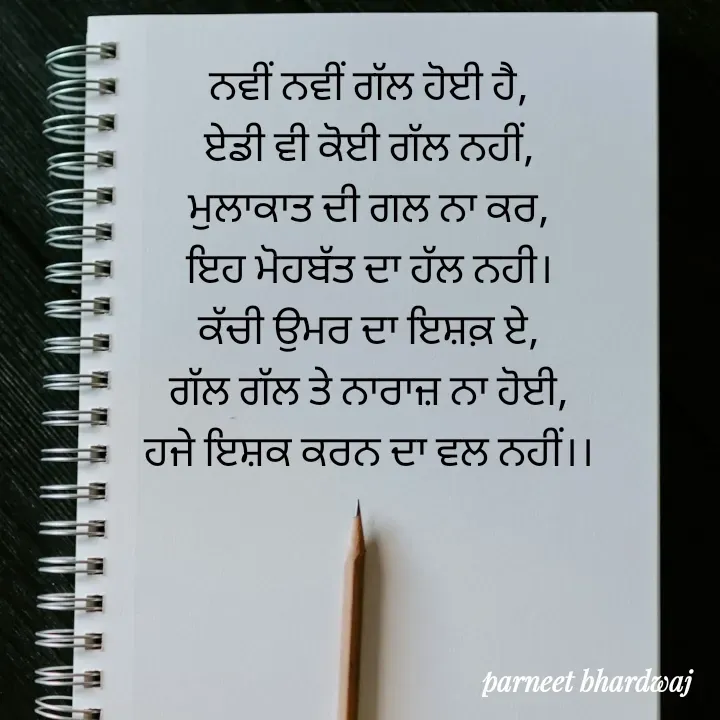 ਨਵੀਂ ਨਵੀਂ ਗੱਲ ਹੋਈ ਹੈ,
ਏਡੀ ਵੀ ਕੋਈ ਗੱਲ ਨਹੀਂ,
ਮੁਲਾਕਾਤ ਦੀ ਗਲ ਨਾ ਕਰ,
ਇਹ ਮੋਹਬੱਤ ਦਾ ਹੱਲ ਨਹੀ।
ਕੱਚੀ ਉਮਰ ਦਾ ਇਸ਼ਕ਼ ਏ,
ਗੱਲ ਗੱਲ ਤੇ ਨਾਰਾਜ਼ ਨਾ ਹੋਈ,
ਹਜੇ ਇਸ਼ਕ ਕਰਨ ਦਾ ਵਲ ਨਹੀਂ।।
parneet bhardwaj